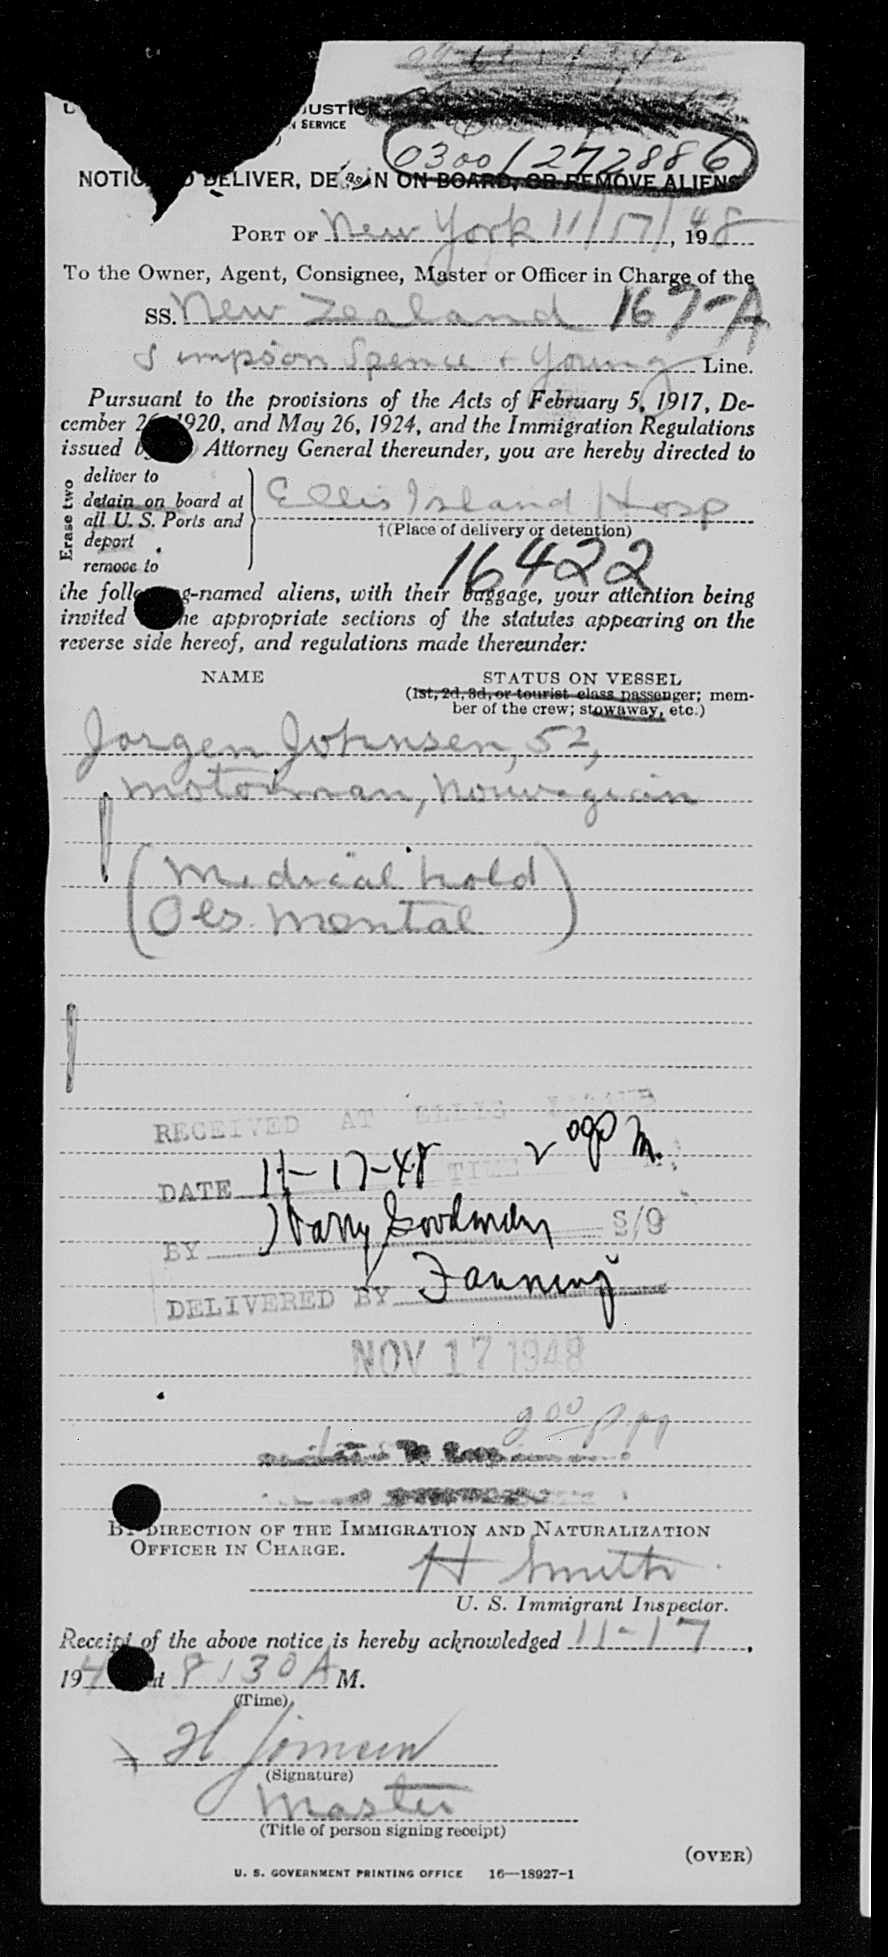 JUSTIC
SERVICE
0300/272886
NOTIC DELIVER, DE N ON BOARD, OR REMOVE ALIENS
PORT OF New York 11/17/48, 19
To the Owner, Agent, Consignee, Master or Officer in Charge of the
SS. New Zealand 167-A
Simpson Spence + Young Line.
Pursuant to the provisions of the Acts of February 5, 1917, De-
cember 26, 1920, and May 26, 1924, and the Immigration Regulations
issued Attorney General thereunder, you are hereby directed to
Erase two
deliver to
detain on board at
all U. S. Ports and
deport
remove to
Ellis Island Hosp
†(Place of delivery or detention)
16422
the follo g-named aliens, with their baggage, your attention being
invited he appropriate sections of the statutes appearing on the
reverse side hereof, and regulations made thereunder:
NAME STATUS ON VESSEL
(1st, 2d, 3d, or tourist class passenger; mem-
ber of the crew; stowaway, etc.)
Jorgen Johnsen, 52,
motorman, Norwegian
(Medical hold
Obs. Mental)
RECEIVED AT ELLIS ISLAND
DATE 11-17-48 TIME 2 00 P M.
BY Harry Goodman S/9
DELIVERED BY Fanning
NOV 17 1948
2 00 PM
BY DIRECTION OF THE IMMIGRATION AND NATURALIZATION
OFFICER IN CHARGE.
H Smith
U. S. Immigrant Inspector.
Receipt of the above notice is hereby acknowledged 11-17,
194 at 8:30 A M.
(Time)
(Signature)
Master
(Title of person signing receipt)
(OVER)
U. S. GOVERNMENT PRINTING OFFICE 16—18927-1